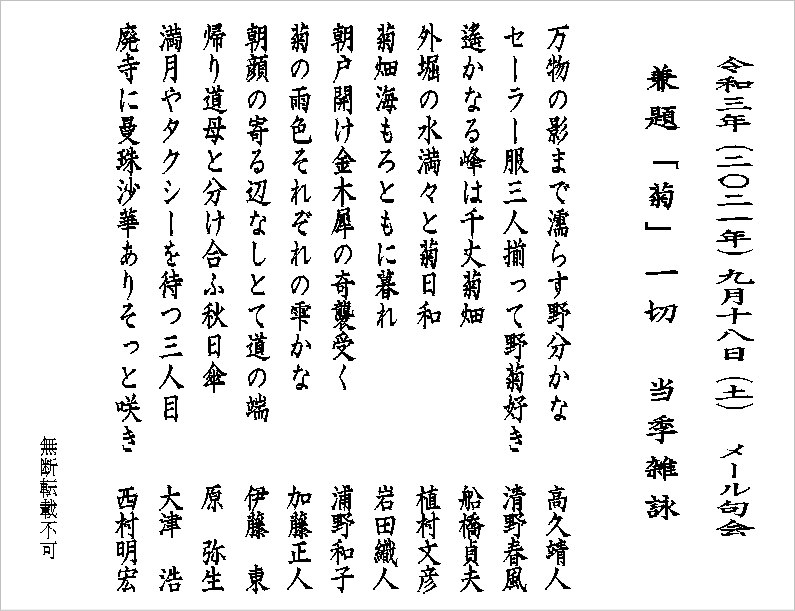 令和三年（二〇二一年）九月十八日（土）　メール句会
兼題「菊」一切　当季雑詠
万物の影まで濡らす野分かな　高久靖人
セーラー服三人揃って野菊好き　清野春風
遙かなる峰は千丈菊畑　船橋貞夫
外堀の水満々と菊日和　植村文彦
菊畑海もろともに暮れ　岩田織人
朝戸開け金木犀の奇襲受く　浦野和子
菊の雨色それぞれの雫かな　加藤正人
朝顔の寄る辺なしとて道の端　伊藤　東
帰り道母と分け合ふ秋日傘　原　弥生
満月やタクシーを待つ三人目　大津　浩
廃寺に曼珠沙華ありそっと咲き　西村明宏
無断転載不可